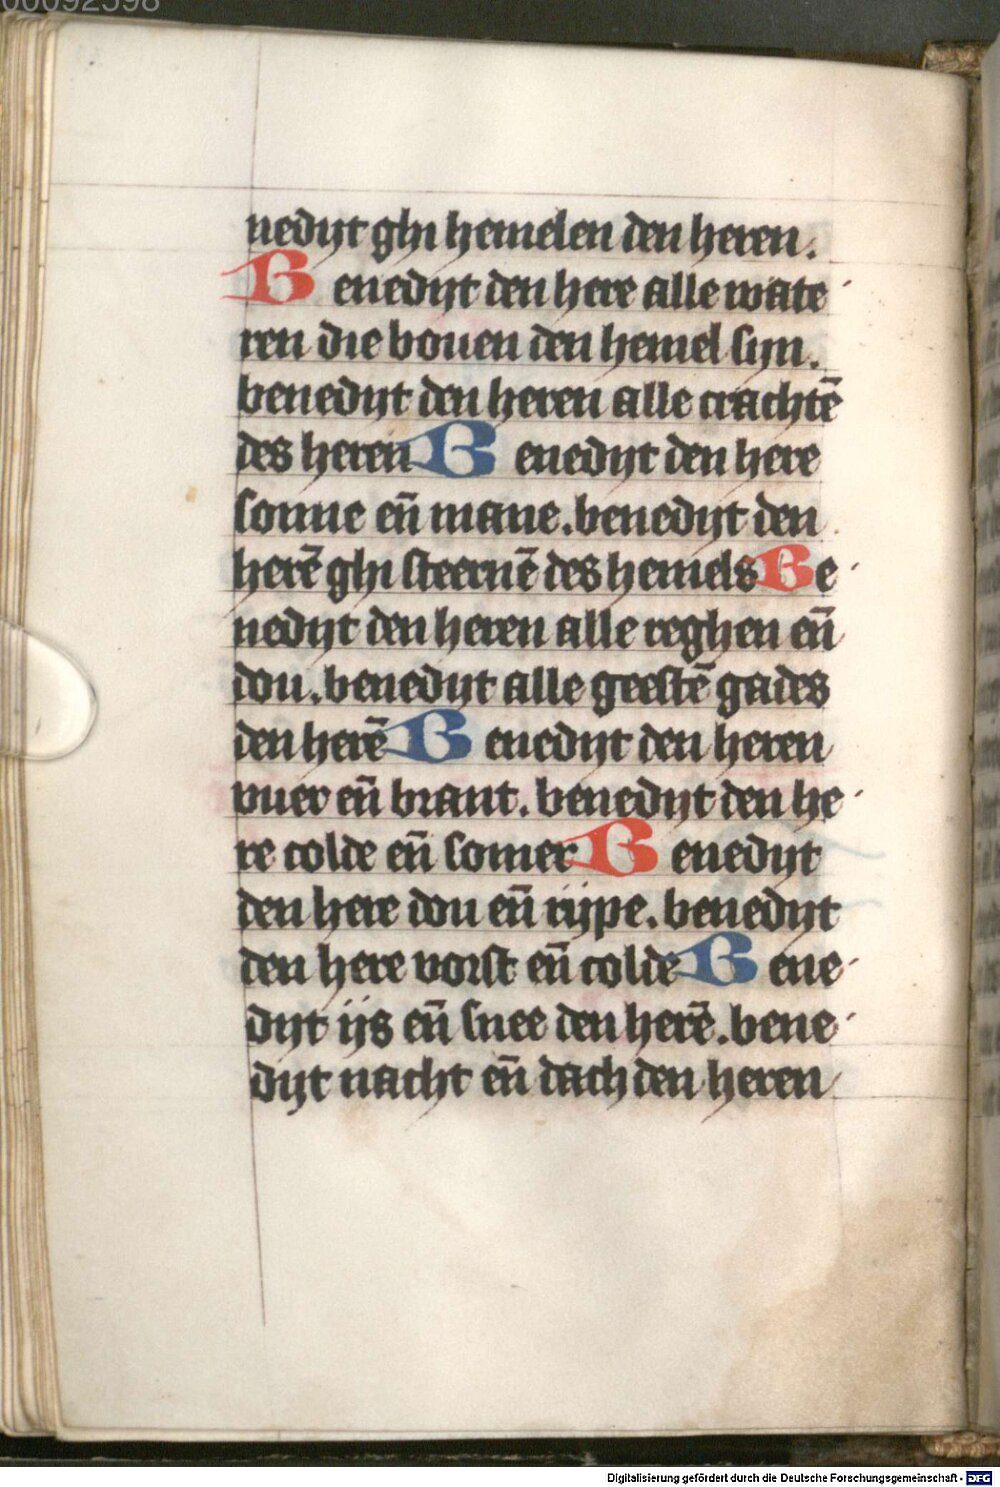 00092598
nedijt ghi hemelen den heren.
Benedijt den here alle wate
ren die bouen den hemel sijn.
benedijt den heren alle crachtē
des heren Benedijt den here
sonne eñ mane. benedijt den
herē ghi steernē des hemels Be
nedijt den heren alle reghen eñ
dou. benedijt alle geestē gades
den herē Benedijt den heren
vuer eñ brant. benedijt den he
re colde eñ somer Benedijt
den here dou eñ rijpe. benedijt
den here vorst eñ colde Bene
dijt ijs eñ snee den herē. bene
dijt nacht eñ dach den heren
Digitalisierung gefördert durch die Deutsche Forschungsgemeinschaft - DFG